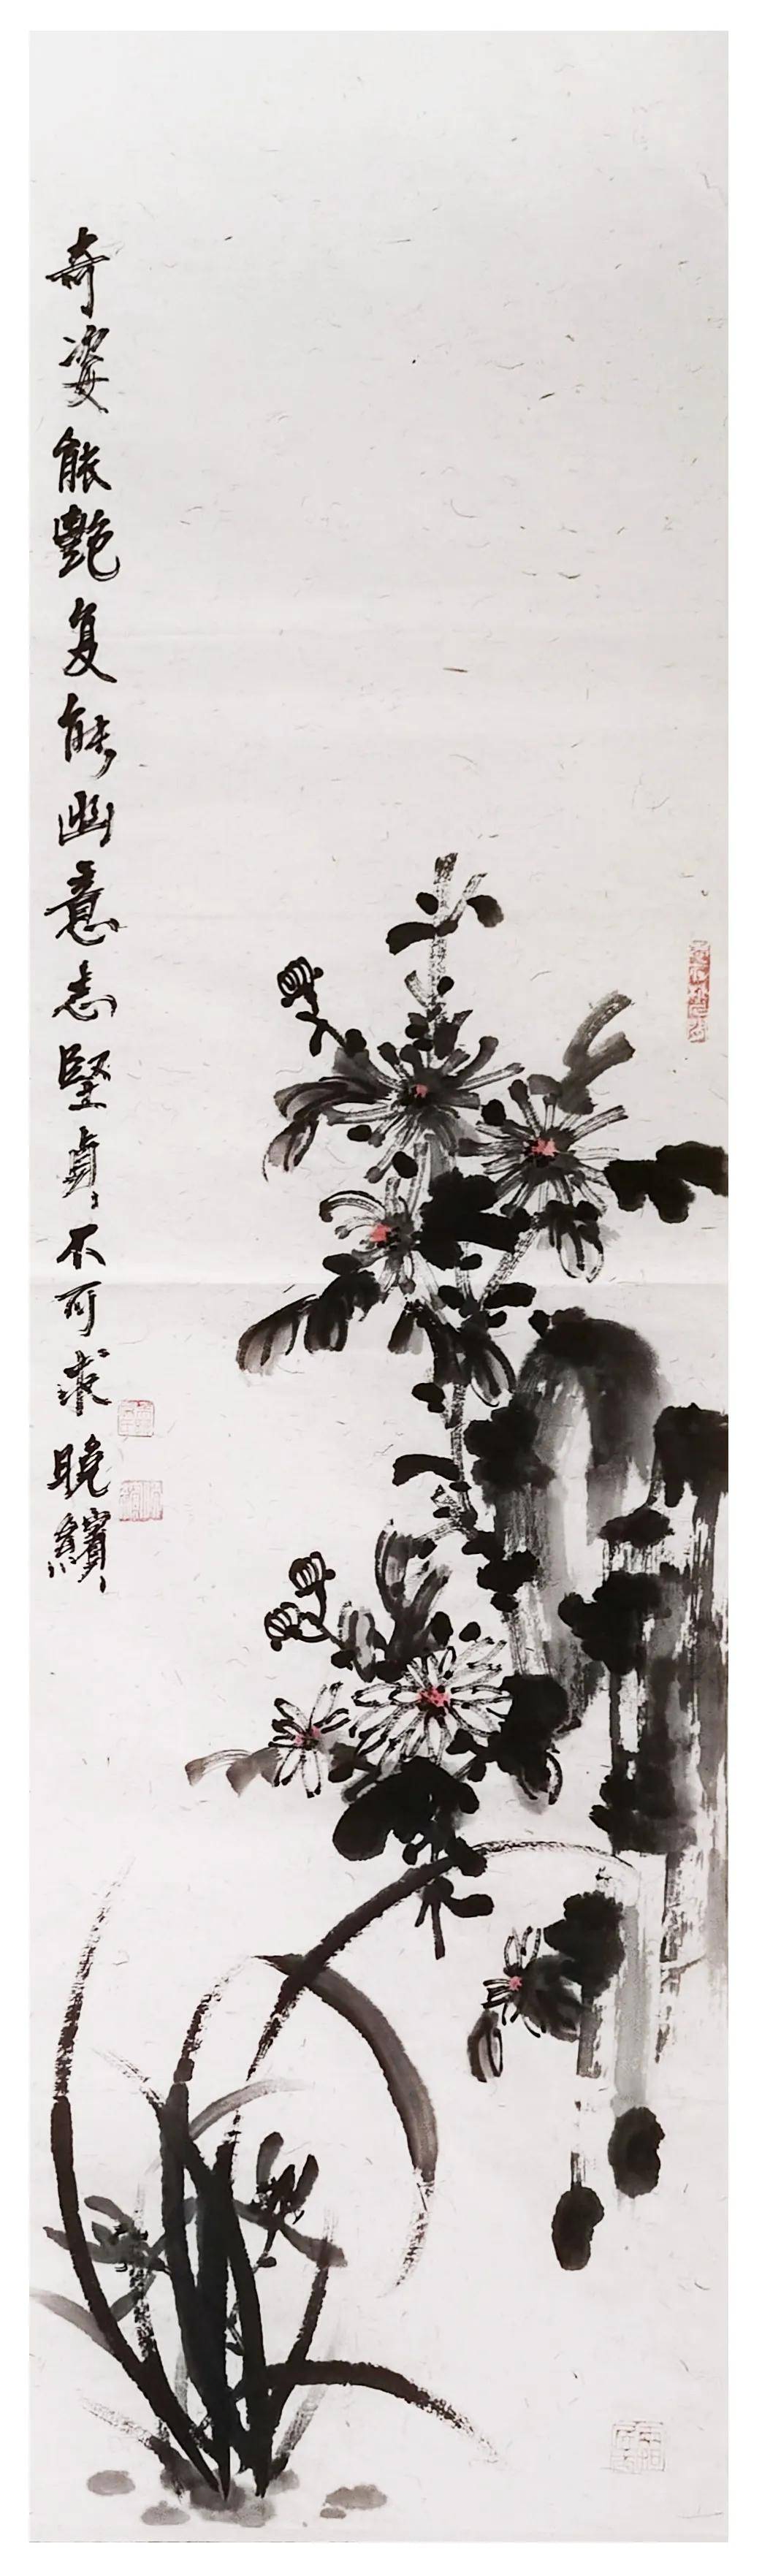 奇姿能艷复能幽意志堅貞不可求曉繽